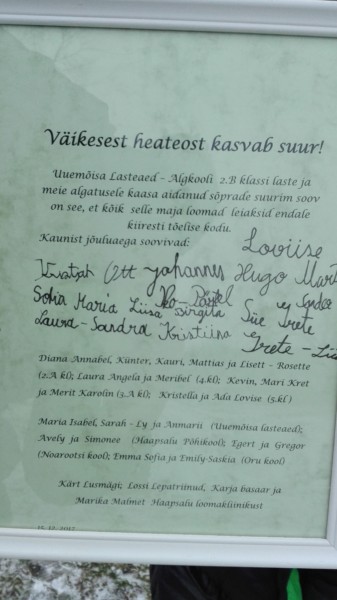 Väikesest heateost kasvab suur!
Uuemõisa Lasteaed – Algkooli 2.B klassi laste ja
meie algatusele kaasa aidanud sõprade suurim soov
on see, et kõik selle maja loomad leiaksid endale
kiiresti tõelise kodu.
Kaunist jõuluaega soovivad:
Loviise
Ott Johannes Hugo Mart
Sofia Maria Liisa Birgita Sander
Laura-Sandra Kristiina Siie Trete
Grete - Lii
Diana Annabel, Künter, Kauri, Mattias ja Lisett - Rosette
(2.A kl); Laura Angela ja Meribel (4.kl); Kevin, Mari Kret
ja Merit Karolin (3.A kl); Kristella ja Ada Lovise (5.kl)
Maria Isabel, Sarah - Ly ja Anmarii (Uuemõisa lasteaed);
Avely ja Simonee (Haapsalu Põhikool); Egert ja Gregor
(Noarootsi kool); Emma Sofia ja Emily-Saskia (Oru kool)
Kärt Lusmägi; Lossi Lepatriinud, Karja basaar ja
Marika Malmet Haapsalu loomakliinikust
15. 12. 2017